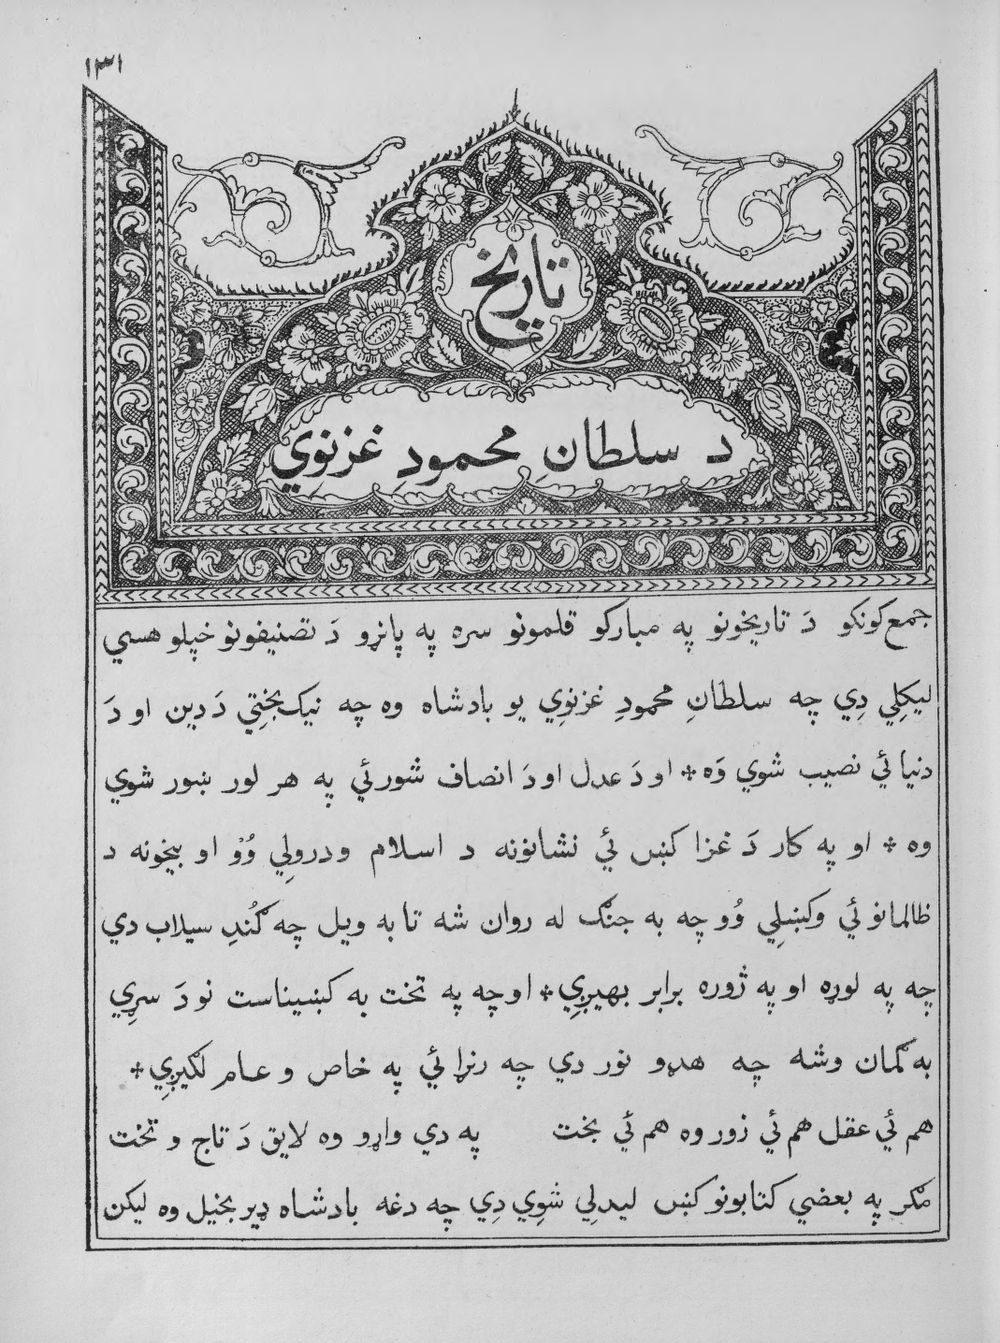 ١٣١
تاريخ
دَ سلطانِ محمودِ غزنوِي
جمع کونکو دَ تاريخونو په مبارکو قلمونو سره په پانړو دَ تصنيفونو خپلو هسي
ليکلِي دِي چه سلطانِ محمودِ غزنوِي يو بادشاه وه چه نيک بختِي دَ دين او دَ
دنيا ئي نصيب شوي وَه * او دَ عدل او دَ انصاف شور ئي په هر لور ښور شوي
وه * او په کار دَ غزا کښ ئي نشانونه د اسلام ودرولِي وُو او بيخونه د
ظالمانو ئي وکښلِي وُو چه به جنګ له روان شه تا به ويل چه ګُندِ سيلاب دي
چه په لوړه او په ژوره برابر بهيږِي * او چه په تخت به کښيناست نو دَ سړِي
به ګمان وشه چه هډو نور دي چه رنړا ئي په خاص و عام لګيږِي *
هم ئي عقل هم ئي زور وه هم ئي بخت په دي واړو وه لايق دَ تاج و تخت
مګر په بعضي کتابونو کښ ليدلِي شوِي دِي چه دغه بادشاه ډير بخيل وه ليکن